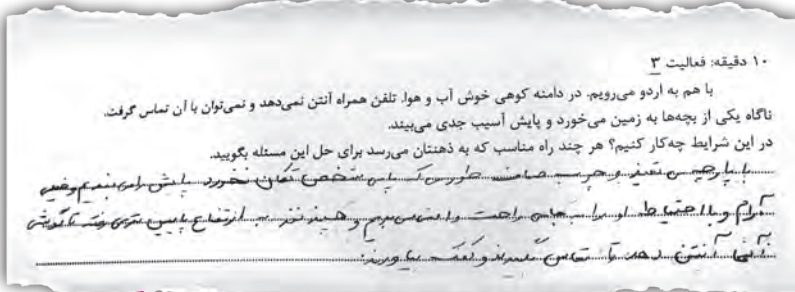 ۱۰ دقیقه: فعالیت ۳
با هم به اردو می‌رویم. در دامنه کوهی خوش آب و هوا. تلفن همراه آنتن نمی‌دهد و نمی‌توان با آن تماس گرفت.
ناگاه یکی از بچه‌ها به زمین می‌خورد و پایش آسیب جدی می‌بیند.
در این شرایط چه‌کار کنیم؟ هر چند راه مناسب که به ذهنتان می‌رسد برای حل این مسئله بگویید.
با پارچه‌ی تمیز و چوب صاف طوری که پای شخص تکان نخورد پایش را می‌بندیم وخیلی
آرام و با احتیاط او را به جای راحت و می‌بریم و چند نفر به ارتفاع پایین‌تری رفته تا گوشی
آنها آنتن دهد تا تماس بگیرند و کمک بیاورند.